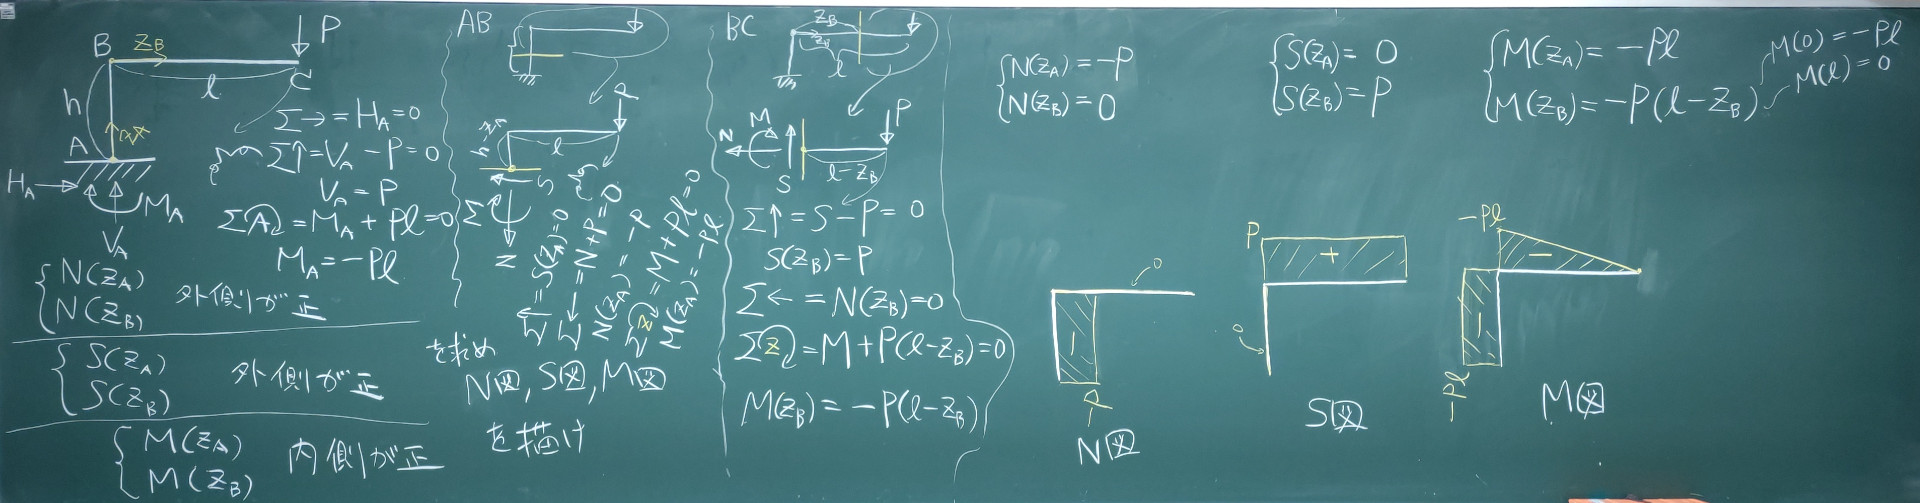 P
B
Z_B
C
l
h
Z_A
A
H_A
M_A
V_A
Σ→ = H_A = 0
Σ↑ = V_A - P = 0
V_A = P
ΣA = M_A + Pl = 0
M_A = -Pl
N(Z_A)
N(Z_B)
外側が正
S(Z_A)
S(Z_B)
外側が正
M(Z_A)
M(Z_B)
内側が正
を求め
N図, S図, M図
を描け
AB
P
l
S
N
= S(Z_A) = 0
= N + P = 0
N(Z_A) = -P
= M + Pl = 0
M(Z_A) = -Pl
BC
Z_B
Z_B
l
N
M
S
P
l - Z_B
Σ↑ = S - P = 0
S(Z_B) = P
Σ← = N(Z_B) = 0
ΣZ = M + P(l - Z_B) = 0
M(Z_B) = -P(l - Z_B)
N(Z_A) = -P
N(Z_B) = 0
S(Z_A) = 0
S(Z_B) = P
M(Z_A) = -Pl
M(Z_B) = -P(l - Z_B)
M(0) = -Pl
M(l) = 0
0
-
-P
N図
P
+
0
S図
-Pl
-
-
-Pl
M図